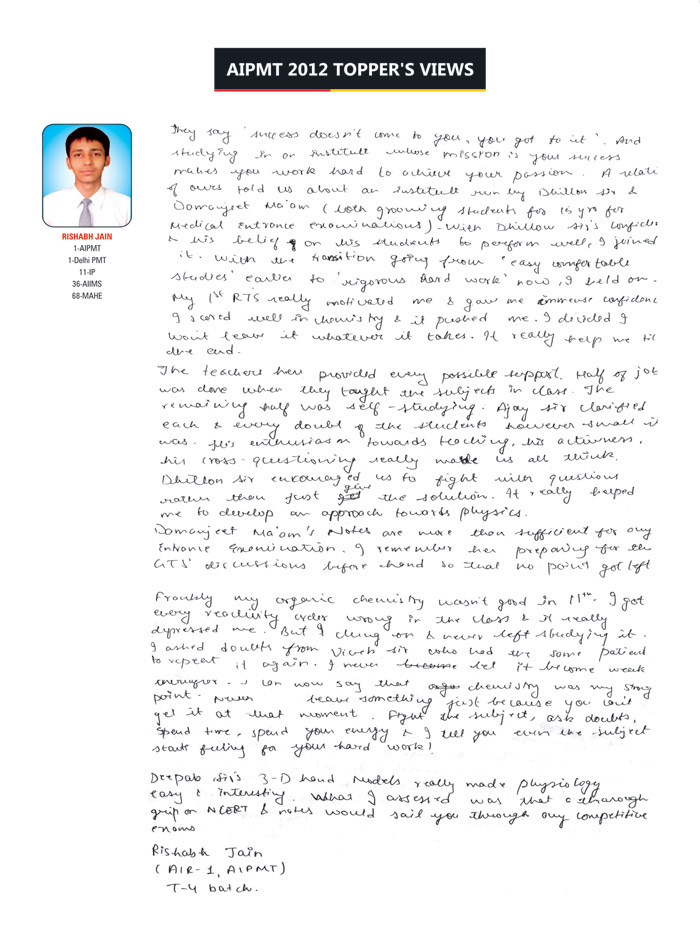 AIPMT 2012 TOPPER'S VIEWS
RISHABH JAIN
1-AIPMT
1-Delhi PMT
11-IP
36-AIIMS
68-MAHE
They say 'success doesn't come to you, you got to it'. And
studying in an institute whose mission is your success
makes you work hard to achieve your passion. A relati
of ours told us about an institute run by Dhillon sir &
Damanjeet Ma'am (both grooming students for 15 yrs for
Medical Entrance examinations). With Dhillon sir's confiden
& his belief on his students to perform well, I joined
it. With the transition going from 'easy comfortable
studies' earlier to 'rigorous hard work' now, I held on.
My 1st RTS really motivated me & gave me immense confidenc
I scored well in chemistry & it pushed me. I decided I
won't leave it whatever it takes. It really help me til
the end.
The teachers here provided every possible support. Half of job
was done when they taught the subjects in class. The
remaining half was self-studying. Ajay sir clarified
each & every doubt of the students however small it
was. His enthusiasm towards teaching, his activness,
his cross-questioning really made us all think.
Dhillon sir encouraged us to fight with questions
rather than just give the solution. It really helped
me to develop an approach towards physics.
Damanjeet Ma'am's Notes are more than sufficient for any
Entrance Examination. I remember her preparing for the
GTS' discussions before hand so that no point got left
Frankly my organic chemistry wasn't good in 11th. I got
every reactivity order wrong in the class & it really
depressed me. But I clung on & never left studying it.
I asked doubts from Vivek sir who had the same patient
to repeat it again. I never let it become weak
thereafter. I can now say that chemistry was my strong
point. Never leave something just because you can't
get it at that moment. Fight the subject, ask doubts,
spend time, spend your energy & I tell you even the subject
starts feeling for your hard work!
Deepak sir's 3-D hand Models really made physiology
easy & interesting. What I assessed was that a thorough
grip on NCERT & notes would sail you through any competitive
exams
Rishabh Jain
(AIR-1, AIPMT)
T-4 batch.